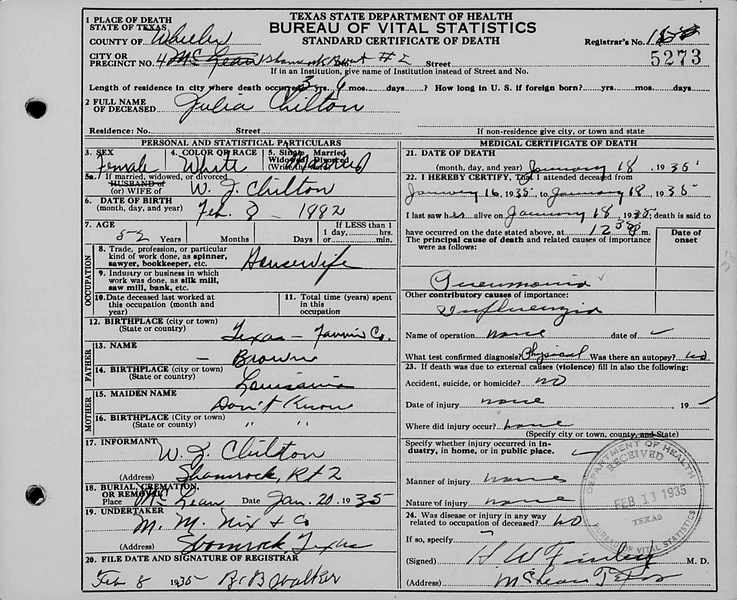 TEXAS STATE DEPARTMENT OF HEALTH
BUREAU OF VITAL STATISTICS
STANDARD CERTIFICATE OF DEATH
1 PLACE OF DEATH
STATE OF TEXAS
COUNTY OF Wheeler
Registrar's No.
5273
CITY OR
PRECINCT NO. 4 McLean Shamrock Rout #2 Street
If in an Institution, give name of Institution instead of Street and No.
Length of residence in city where death occurred 3 yrs. 6 mos. days? How long in U. S. if foreign born? yrs. mos. days
2 FULL NAME
OF DECEASED Julia Chilton
Residence: No. Street
If non-residence give city, or town and state
PERSONAL AND STATISTICAL PARTICULARS
3. SEX Female
4. COLOR OR RACE White
5. Single, Married
Widowed Divorced
(Write the word) Married
5a. If married, widowed, or divorced
HUSBAND of
(or) WIFE of W. J. Chilton
6. DATE OF BIRTH
(month, day, and year) Feb. 8 - 1882
7. AGE 52 Years Months Days
If LESS than 1
1 day, hrs.
or min.
OCCUPATION
8. Trade, profession, or particular
kind of work done, as spinner,
sawyer, bookkeeper, etc. Housewife
9. Industry or business in which
work was done, as silk mill,
saw mill, bank, etc.
10. Date deceased last worked at
this occupation (month and
year)
11. Total time (years)
spent in this
occupation
12. BIRTHPLACE (city or town)
(State or country) Texas - Fannin Co.
FATHER
13. NAME - Brown
14. BIRTHPLACE (City or town)
(State or country) Louisiana
MOTHER
15. MAIDEN NAME Don't Know
16. BIRTHPLACE (City or town)
(State or country) " "
17. INFORMANT W. J. Chilton
(Address) Shamrock, Rt 2
18. BURIAL, CREMATION,
OR REMOVAL? McLean Date Jan. 20. 1935
19. UNDERTAKER M. M. Nix & Co
(Address) Shamrock Texas
20. FILE DATE AND SIGNATURE OF REGISTRAR
Feb 8 1935 B. B. Walker
MEDICAL CERTIFICATE OF DEATH
21. DATE OF DEATH
(month, day, and year) January 18, 1935
22. I HEREBY CERTIFY, That I attended deceased from
January 16, 1935 to January 18, 1935
I last saw her alive on January 18, 1935; death is said to
have occurred on the date stated above, at 12 30 m.
The principal cause of death and related causes of importance
were as follows:
Date of
onset
Pneumonia
Other contributory causes of importance:
Influenza
Name of operation none date of
What test confirmed diagnosis? Physical Was there an autopsy? no
23. If death was due to external causes (violence) fill in also the following:
Accident, suicide, or homicide? no
Date of injury none 19
Where did injury occur? none
(Specify city or town, county, and State)
Specify whether injury occurred in in-
dustry, in home, or in public place.
Manner of injury none
Nature of injury none
24. Was disease or injury in any way
related to occupation of deceased? no
If so, specify
(Signed) H W Finley M. D.
(Address) McLean Texas
DEPARTMENT OF HEALTH
RECEIVED
FEB 11 1935
TEXAS
BUREAU OF VITAL STATISTICS